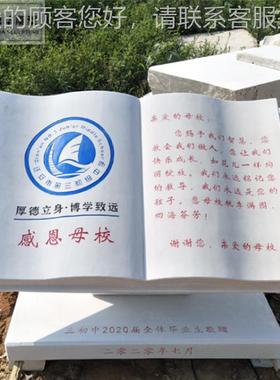 的顾客您好，请联系客服
厚德立身·博学致远
感恩母校
亲爱的母校：
您赐予我们智慧，您
教会我们做人，您让我们
快乐成长，如花儿一样向
阳绽放。我们永远铭记您
的教导，我们永远是您的
孩子。您母校桃李满园，
四海芬芳！
谢谢您，亲爱的母校
三初中2020届全体毕业生敬赠
二零二零年七月